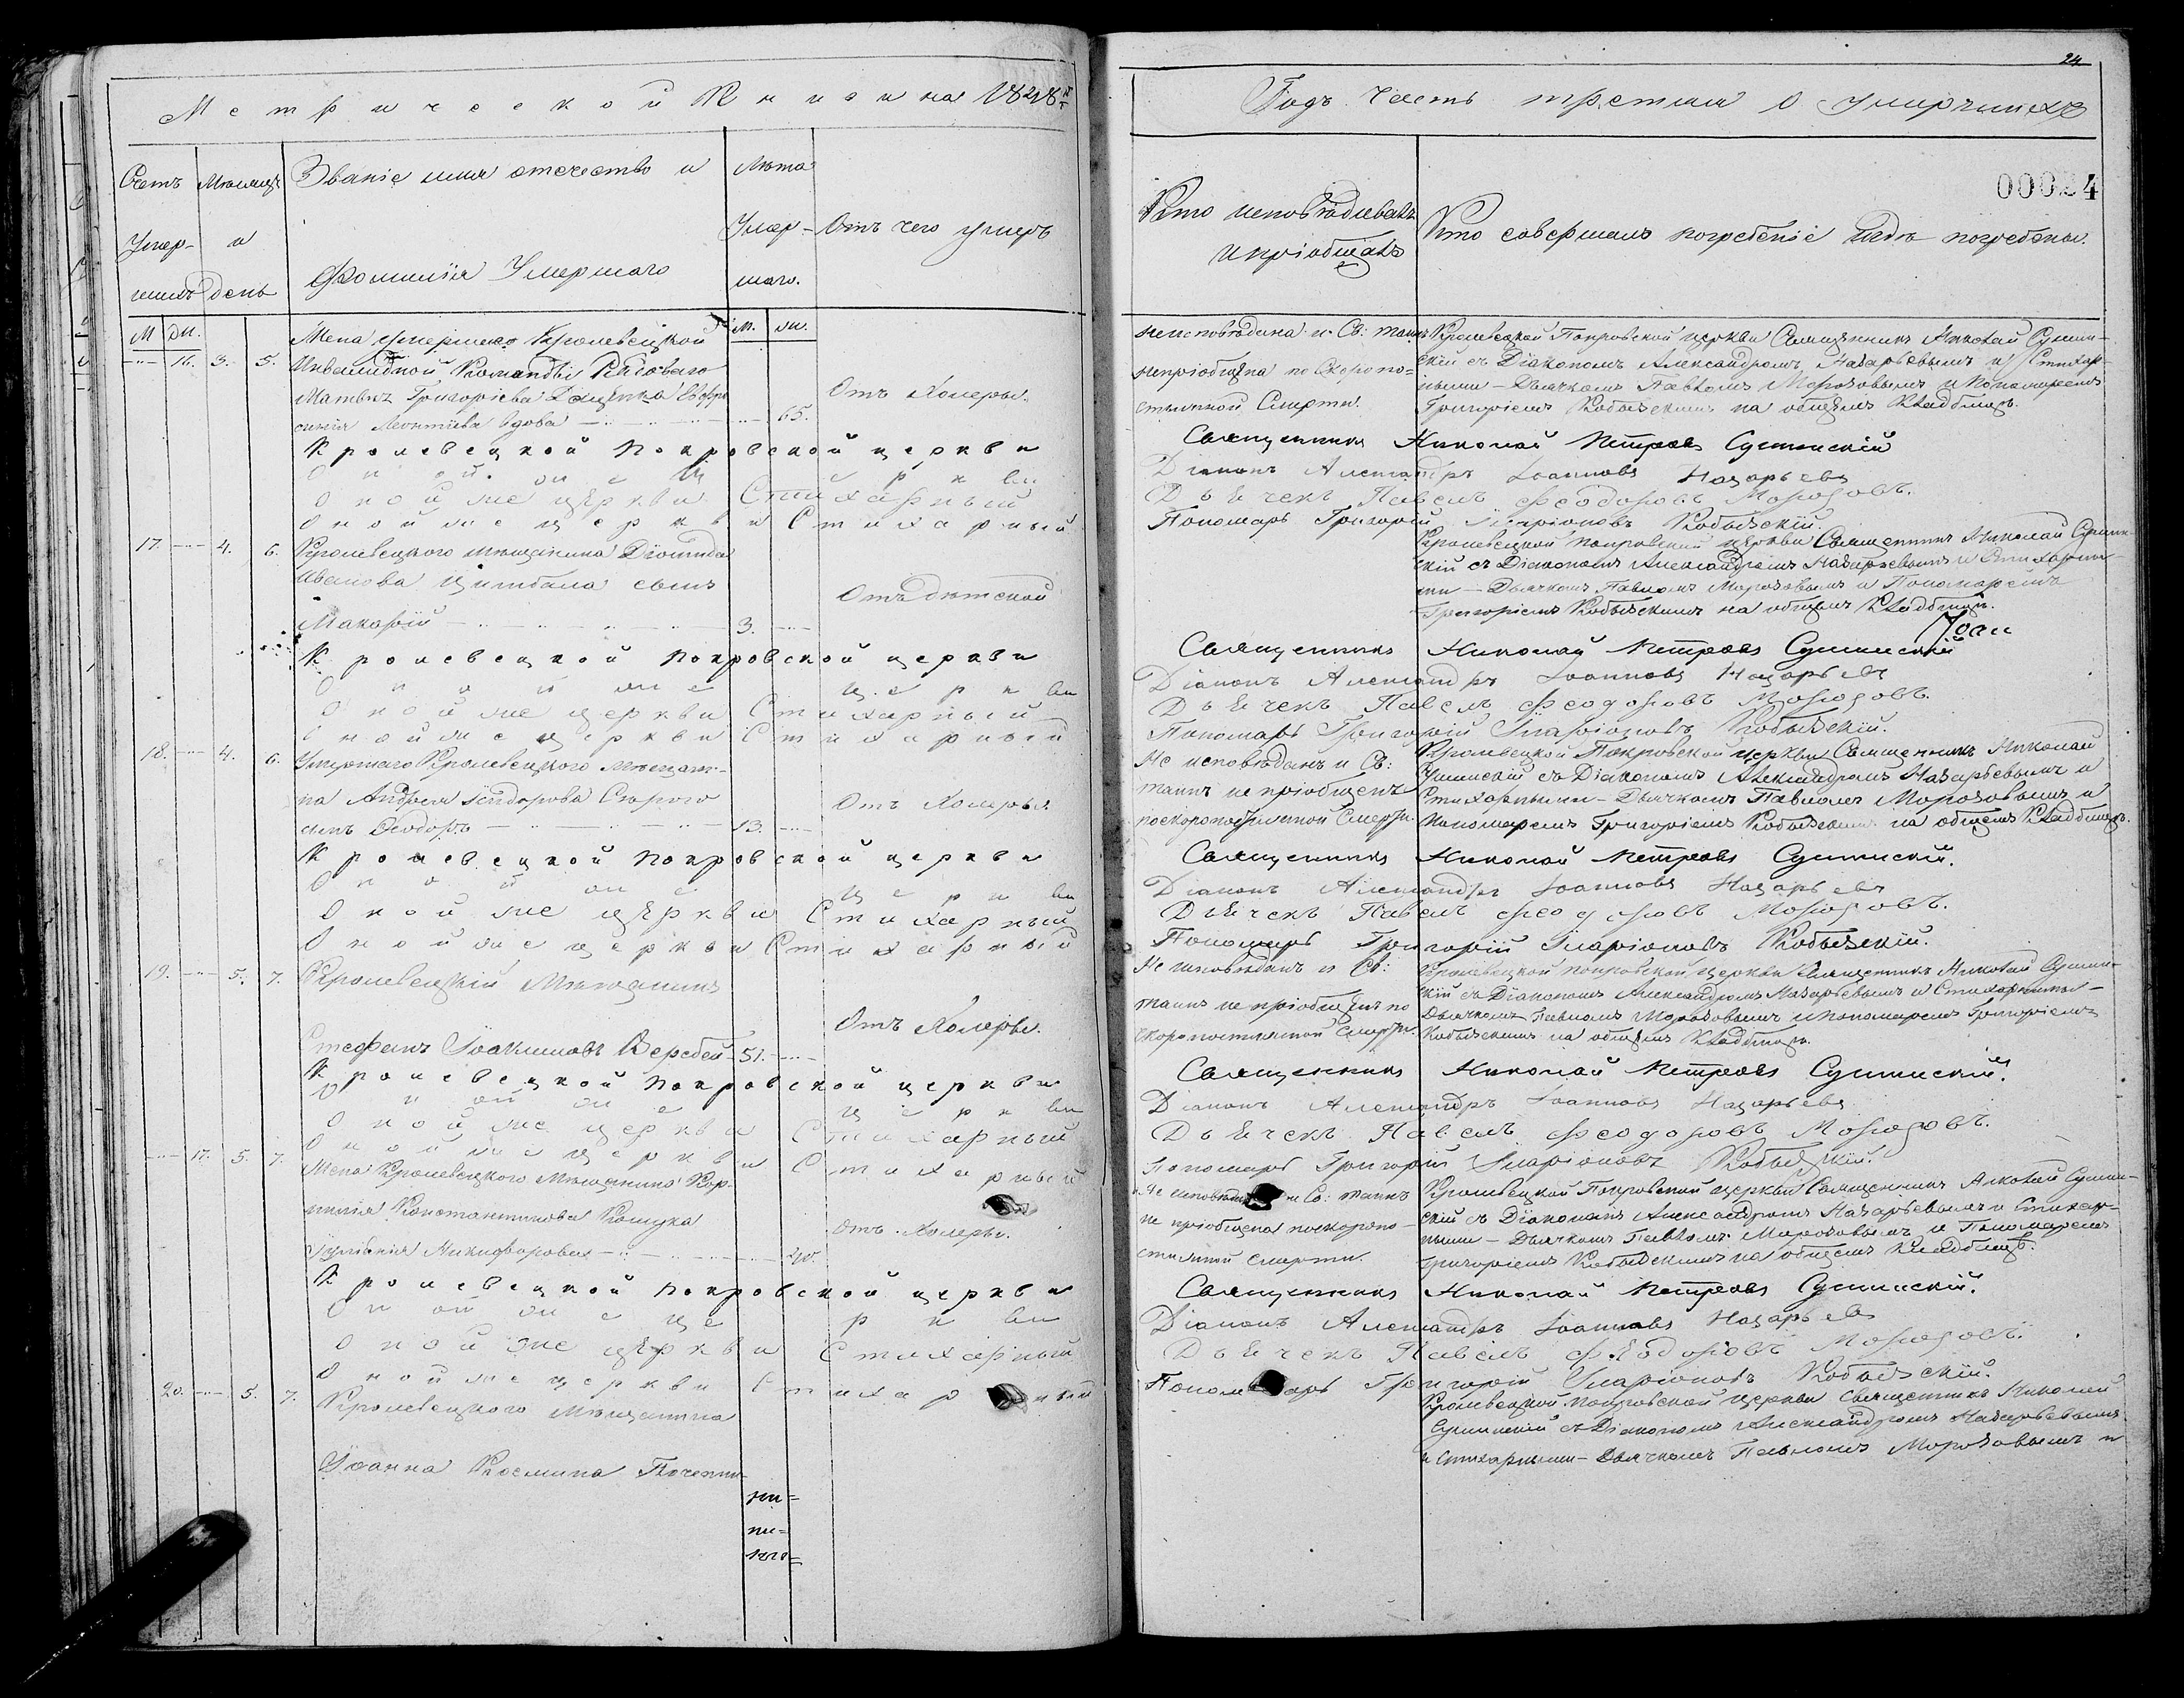 Метрической Книги на 1848й
Счетъ Умер-шихъ
Мѣсяцъ и день
Званіе имя отечество и Фамилія Умершаго
Лѣта Умер-шаго.
Отъ чего умеръ
М. Ж. М. Ж.
16. 3. 5. Жена умершаго Кролевецкой
Инвалидной Команды Рядоваго
Матвея Григоріева Евфро
синія Леонтіева вдова 65. Отъ Холеры.
Кролевецкой Покровской церкви
Оной же церкви
Оной же церкви Стихарный
Оной же церкви Стихарный
17. 4. 6. Кролевецкого мѣщанина Діомида
Иванова Цимбала сынъ
Макарій 3. Отъ дѣтской
Кролевецкой Покровской церкви
Оной же церкви
Оной же церкви Стихарный
Оной же церкви Стихарный
18. 4. 6. Умершаго Кролевецкого мѣщани-
на Андрея Сидорова Старого
сынъ Феодоръ 13. Отъ Холеры.
Кролевецкой Покровской церкви
Оной же церкви
Оной же церкви Стихарный
Оной же церкви Стихарный
19. 5. 7. Кролевецкій Мѣщанинъ
Стефанъ Іоакимовъ Веребей 51. Отъ Холеры.
Кролевецкой Покровской церкви
Оной же церкви
Оной же церкви Стихарный
Оной же церкви Стихарный
17. 5. 7. Жена Кролевецкого Мѣщанина Кор-
нилія Константинова
Іуліанія Никифоровна 40. Отъ Холеры.
Кролевецкой Покровской церкви
Оной же церкви
Оной же церкви Стихарный
Оной же церкви Стихарный
20. 5. 7. Кролевецкого Мѣщанина
Іоанна Космина
24
Годъ Часть третия о умершихъ
00024
Кто исповѣдывалъ и пріобщалъ
Кто совершалъ погребеніе и гдѣ погребены.
неисповѣдана и Св: таинъ Кролевецкой Покровской церкви Священникъ Николай Сумин-
непріобщена по скоропо= скій съ Діакономъ Александромъ Назарьевымъ и Стихар-
стижной Смерти. ными — Дьячкомъ Павломъ Морозовымъ и Пономаремъ
Григоріемъ на общемъ Кладбищѣ.
Священникъ Николай Петровъ Суминскій
Діаконъ Александръ Іоанновъ Назарьевъ
Дьячекъ Павелъ Феодоровъ Морозовъ.
Пономарь Григорій Иларіоновъ
Кролевецкой Покровской церкви Священникъ Николай Сумин-
скій съ Діакономъ Александромъ Назарьевымъ и Стихарны-
ми — Дьячкомъ Павломъ Морозовымъ и Пономаремъ
Григоріемъ на общемъ Кладбищѣ.
Священникъ Николай Петровъ Суминскій
Діаконъ Александръ Іоанновъ Назарьевъ
Дьячекъ Павелъ Феодоровъ Морозовъ.
Пономарь Григорій Иларіоновъ
Не исповѣданъ и Св: Кролевецкой Покровской церкви Священникъ Николай
таинъ не пріобщенъ Суминскій съ Діакономъ Александромъ Назарьевымъ и
Стихарными — Дьячкомъ Павломъ Морозовымъ и
поскоропостижной Смерти. Пономаремъ Григоріемъ на общемъ Кладбищѣ.
Священникъ Николай Петровъ Суминскій.
Діаконъ Александръ Іоанновъ Назарьевъ
Дьячекъ Павелъ Феодоровъ Морозовъ.
Пономарь Григорій Иларіоновъ
Не исповѣданъ и Св: Кролевецкой Покровской церкви Священникъ Николай Сумин-
таинъ не пріобщенъ по скій съ Діакономъ Александромъ Назарьевымъ и Стихарными —
Дьячкомъ Павломъ Морозовымъ и Пономаремъ Григоріемъ
скоропостижной Смерти. на общемъ Кладбищѣ.
Священникъ Николай Петровъ Суминскій.
Діаконъ Александръ Іоанновъ Назарьевъ
Дьячекъ Павелъ Феодоровъ Морозовъ.
Пономарь Григорій Иларіоновъ
Не и Св: таинъ Кролевецкой Покровской церкви Священникъ Николай Сумин-
не пріобщена поскоропо- скій съ Діакономъ Александромъ Назарьевымъ и Стихар-
стижной смерти. ными — Дьячкомъ Павломъ Морозовымъ и Пономаремъ
Григоріемъ на общемъ Кладбищѣ.
Священникъ Николай Петровъ Суминскій.
Діаконъ Александръ Іоанновъ Назарьевъ
Дьячекъ Павелъ Феодоровъ Морозовъ.
Пономарь Григорій Иларіоновъ
Кролевецкой Покровской церкви Священникъ Николай
Суминскій съ Діакономъ Александромъ Назарьевымъ
и Стихарными — Дьячкомъ Павломъ Морозовымъ и